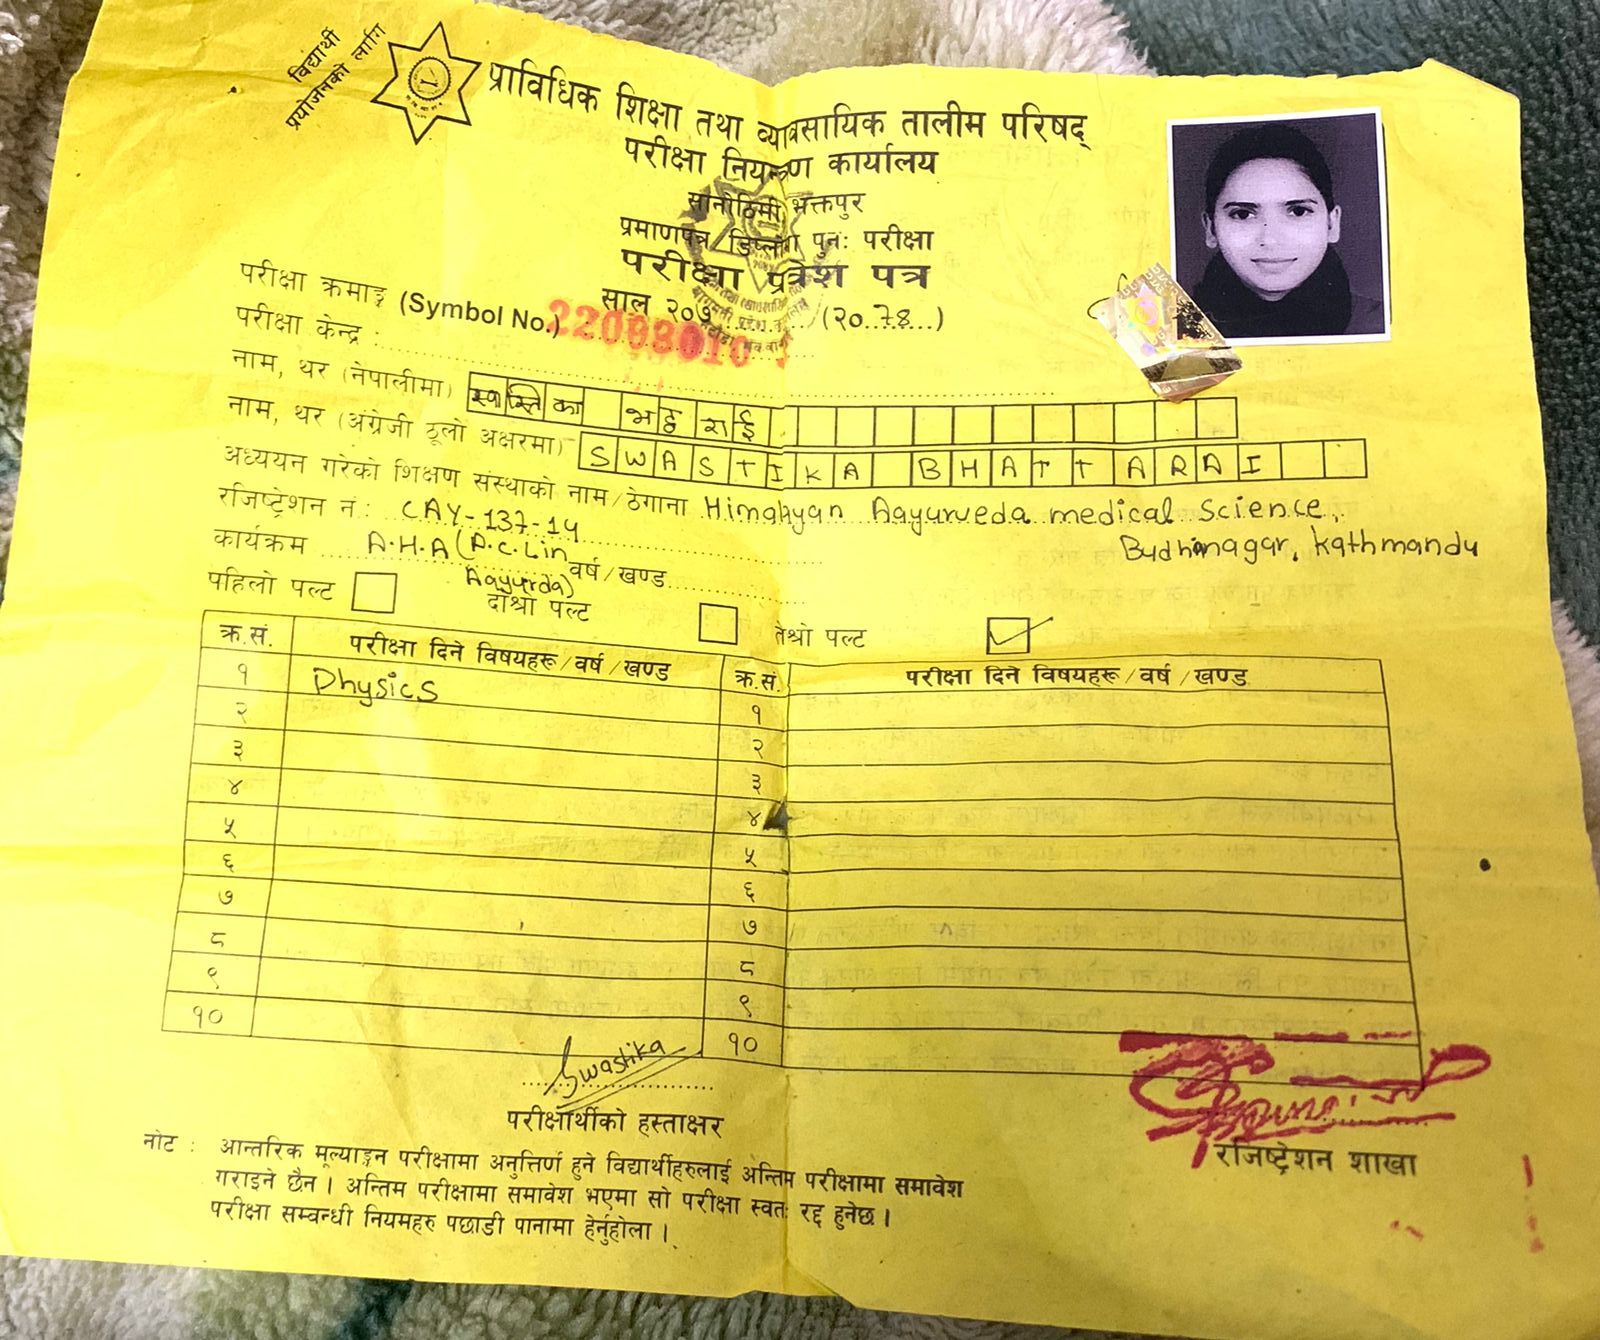 विद्यार्थी
प्रयोजनको लागि
प्राविधिक शिक्षा तथा व्यावसायिक तालीम परिषद्
परीक्षा नियन्त्रण कार्यालय
सानोठिमी भक्तपुर
प्रमाणपत्र डिप्लोमा पुनः परीक्षा
परीक्षा प्रवेश पत्र
साल २०७ (२०७८)
परीक्षा क्रमाङ्क (Symbol No.)
परीक्षा केन्द्र :
नाम, थर (नेपालीमा) स्वास्तिका भट्टराई
नाम, थर (अंग्रेजी ठूलो अक्षरमा) SWASTIKA BHATTARAI
अध्ययन गरेको शिक्षण संस्थाको नाम/ठेगाना Himalyan Aayurveda medical Science,
Budhanagar, Kathmandu
रजिष्ट्रेशन नं: CAY-137-14
कार्यक्रम A.H.A (A.C.L in Aayurda) वर्ष/खण्ड
पहिलो पल्ट दोश्रो पल्ट तेश्रो पल्ट ✓
क्र.सं. परीक्षा दिने विषयहरू/वर्ष/खण्ड क्र.सं. परीक्षा दिने विषयहरू/वर्ष/खण्ड
१ Physics १
२ २
३ ३
४ ४
५ ५
६ ६
७ ७
८ ८
९ ९
१० १०
Swastika
परीक्षार्थीको हस्ताक्षर
रजिष्ट्रेशन शाखा
नोट : आन्तरिक मूल्याङ्कन परीक्षामा अनुत्तिर्ण हुने विद्यार्थीहरुलाई अन्तिम परीक्षामा समावेश
गराइने छैन । अन्तिम परीक्षामा समावेश भएमा सो परीक्षा स्वतः रद्द हुनेछ ।
परीक्षा सम्वन्धी नियमहरु पछाडी पानामा हेर्नुहोला ।